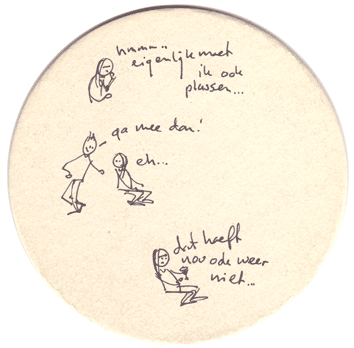 hmmm..
eigenlijk moet
ik ook
plassen...
ga mee dan!
eh...
dat hoeft
nou ook weer
niet...